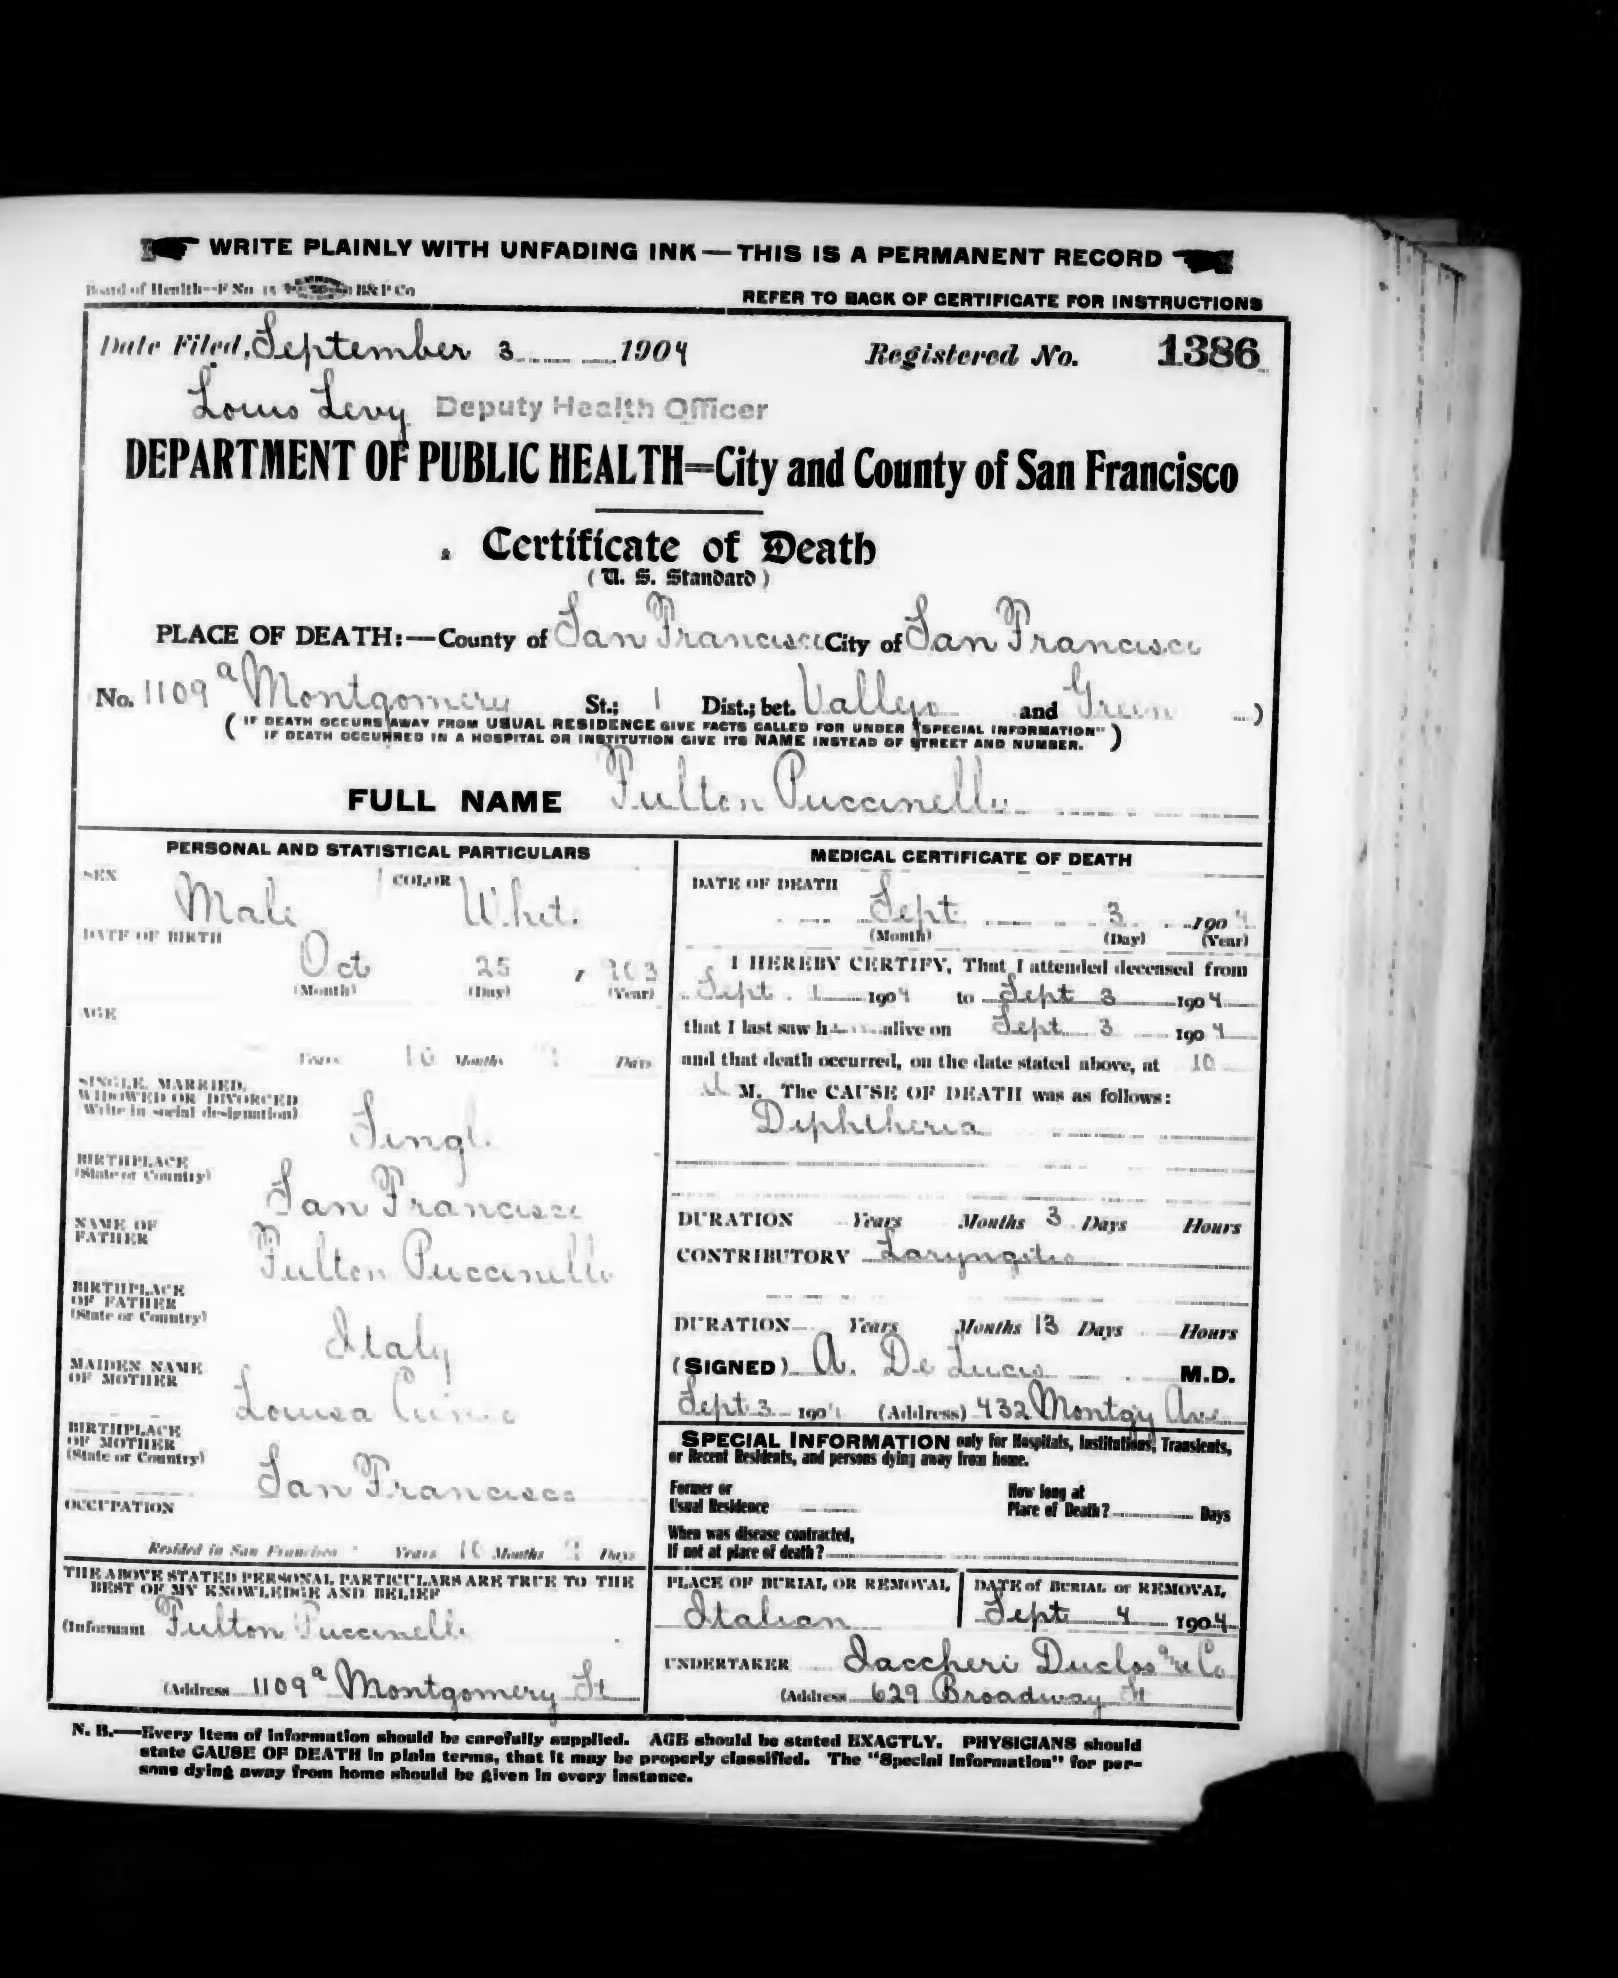 WRITE PLAINLY WITH UNFADING INK — THIS IS A PERMANENT RECORD
Board of Health—F No. 15 B&P Co
REFER TO BACK OF CERTIFICATE FOR INSTRUCTIONS
Date Filed, September 3 1904 Registered No. 1386
Louis Levy Deputy Health Officer
DEPARTMENT OF PUBLIC HEALTH=City and County of San Francisco
Certificate of Death
( U. S. Standard )
PLACE OF DEATH:—County of San Francisco City of San Francisco
No. 1109 a Montgomery St.; 1 Dist.; bet. Vallejo and Green )
( IF DEATH OCCURS AWAY FROM USUAL RESIDENCE GIVE FACTS CALLED FOR UNDER "SPECIAL INFORMATION" )
IF DEATH OCCURRED IN A HOSPITAL OR INSTITUTION GIVE ITS NAME INSTEAD OF STREET AND NUMBER.
FULL NAME Fulton Puccinelli
PERSONAL AND STATISTICAL PARTICULARS
SEX Male COLOR White
DATE OF BIRTH
Oct 25 , 903
(Month) (Day) (Year)
AGE
Years 10 Months 9 Days
SINGLE, MARRIED,
WIDOWED OR DIVORCED
(Write in social designation)
Single
BIRTHPLACE
(State or Country)
San Francisco
NAME OF
FATHER
Fulton Puccinelli
BIRTHPLACE
OF FATHER
(State or Country)
Italy
MAIDEN NAME
OF MOTHER
Louisa
BIRTHPLACE
OF MOTHER
(State or Country)
San Francisco
OCCUPATION
Resided in San Francisco Years 10 Months 9 Days
THE ABOVE STATED PERSONAL PARTICULARS ARE TRUE TO THE
BEST OF MY KNOWLEDGE AND BELIEF
(Informant Fulton Puccinelli
(Address 1109 a Montgomery St
MEDICAL CERTIFICATE OF DEATH
DATE OF DEATH
Sept 3 1904
(Month) (Day) (Year)
I HEREBY CERTIFY, That I attended deceased from
Sept 1 1904 to Sept 3 1904
that I last saw h alive on Sept 3 1904
and that death occurred, on the date stated above, at 10
M. The CAUSE OF DEATH was as follows:
Diphtheria
DURATION Years Months 3 Days Hours
CONTRIBUTORY Laryngitis
DURATION Years Months 13 Days Hours
(SIGNED) A. De Lucis M.D.
Sept 3 1904 (Address) 432 Montgy Ave
SPECIAL INFORMATION only for Hospitals, Institutions, Transients,
or Recent Residents, and persons dying away from home.
Former or
Usual Residence
How long at
Place of Death? Days
When was disease contracted,
If not at place of death?
PLACE OF BURIAL OR REMOVAL
Italian
DATE of BURIAL or REMOVAL
Sept 4 1904
UNDERTAKER Iaccheri Duclos and Co
(Address 629 Broadway St
N. B.—Every item of information should be carefully supplied. AGE should be stated EXACTLY. PHYSICIANS should
state CAUSE OF DEATH in plain terms, that it may be properly classified. The "Special Information" for per-
sons dying away from home should be given in every instance.